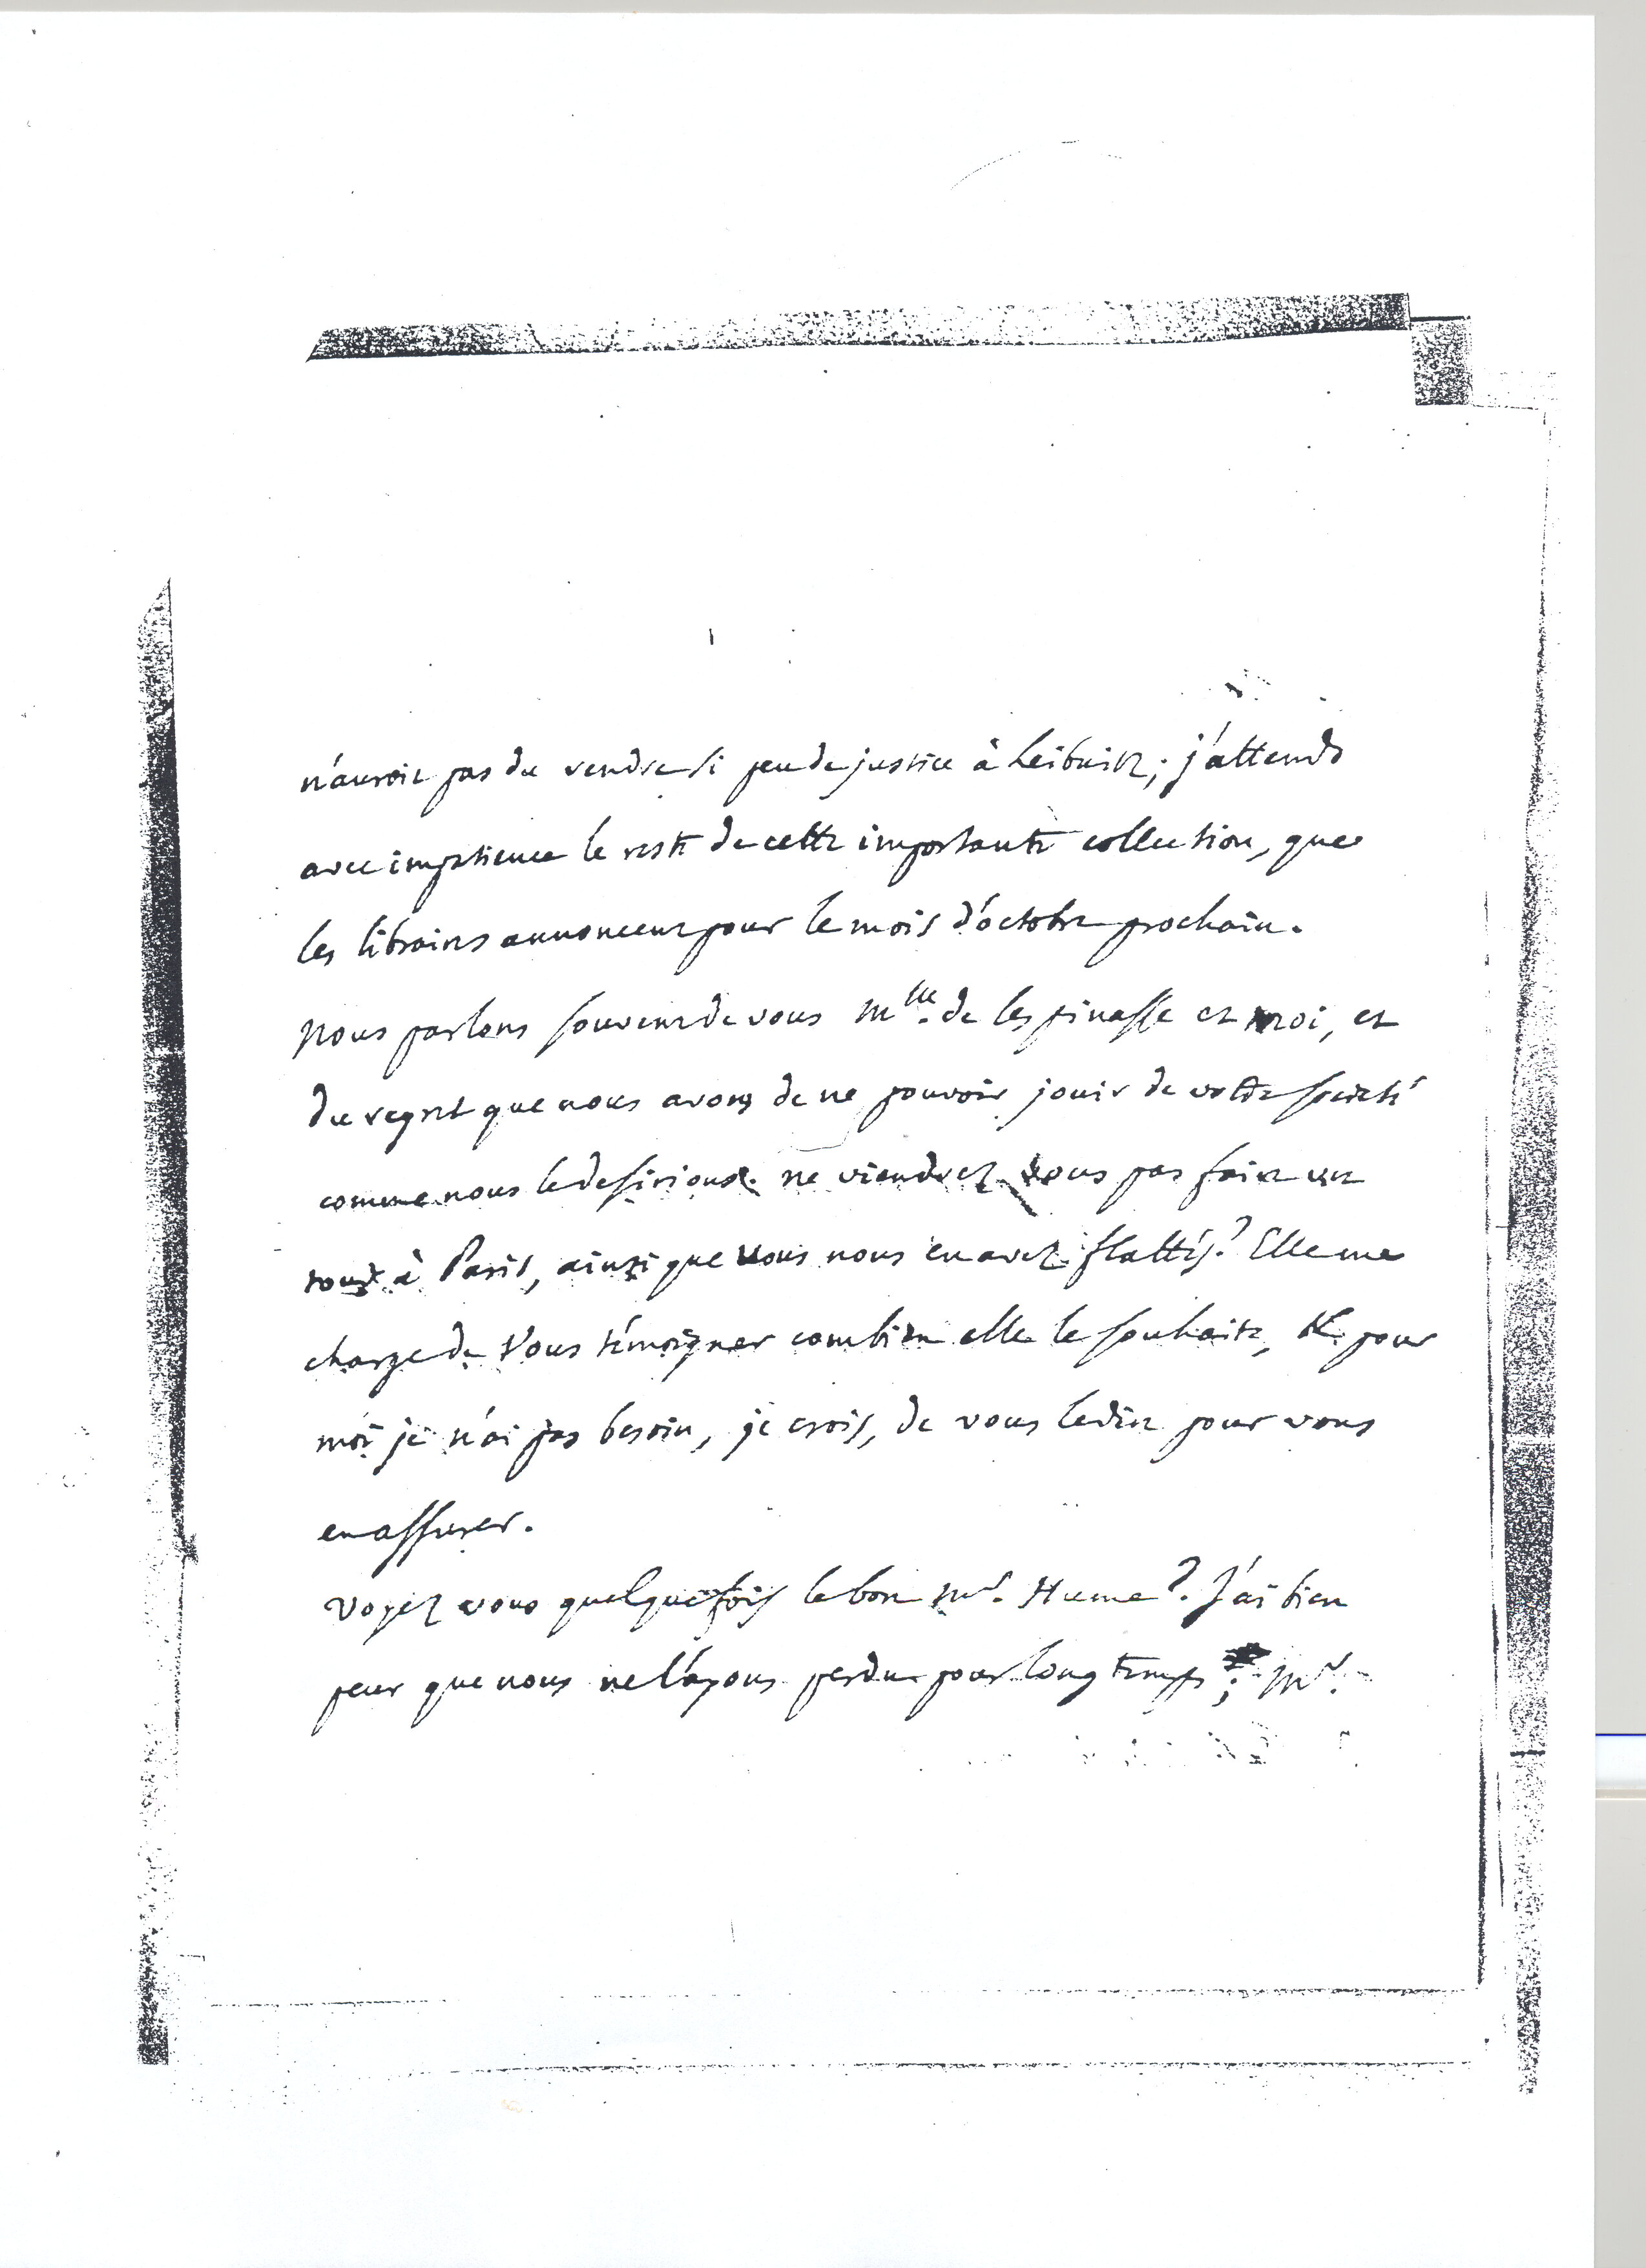 n'auroit pas du rendre si peu de justice à Leibnitz; j'attends
avec impatience le reste de cette importante collection, que
les libraires annoncent pour le mois d'octobre prochain.
Nous parlons souvent de vous Mlle. de Lespinasse et moi, et
du regret que nous avons de ne pouvoir jouir de votre société
comme nous le desirions. ne viendrez vous pas faire un
tour à Paris, ainsi que vous nous en avez flattés? Elle me
charge de vous témoigner combien elle le souhaite, & pour
moi je n'ai pas besoin, je crois, de vous le dire pour vous
en assurer.
Voyez vous quelquefois le bon Mr. Hume? J'ai bien
peur que nous ne l'ayons perdu pour long temps; Mr.